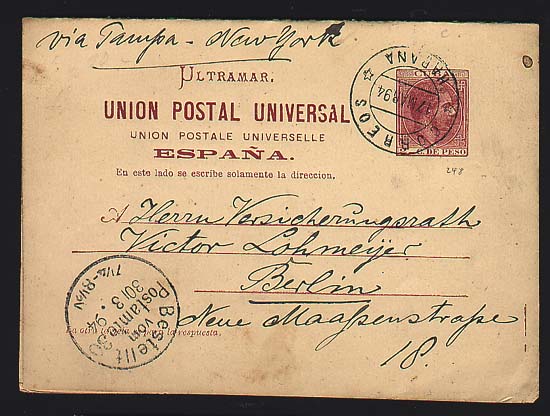 via Tampa - New York
ULTRAMAR.
UNION POSTAL UNIVERSAL
UNION POSTALE UNIVERSELLE
ESPAÑA.
En este lado se escribe solamente la direccion.
CORREOS
HABANA
17 MAR 94
DE PESO
248
A Herrn Versicherungsrath
Victor Lohmeyer
Berlin
Neue Maassenstraße
18.
Bestellt
vom
Postamte 30
30/3. 94
7½-8½V
La otra para la respuesta.